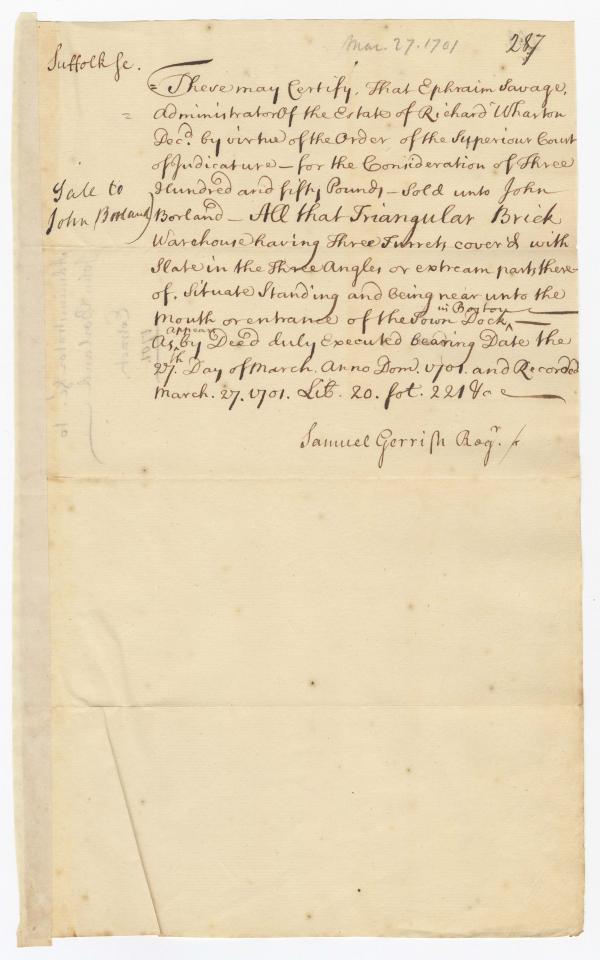 Mar. 27. 1701
287
Suffolk Sc.
These may Certify, That Ephraim Savage,
Administrator Of the Estate of Richard Wharton
Decd. by virtue of the Order of the Superiour Court
of Judicature – for the Consideration of Three
Hundred and fifty Pounds – Sold unto John
Sale to
John Borland
Borland – All that Triangular Brick
Warehouse having Three Turrets cover'd with
Slate in the Three Angles or extream parts there-
of. Situate Standing and being near unto the
Mouth or entrance of the Town Dock ^ in Boston —
As ^ appears by Deed duly Executed bearing Date the
27th. Day of March. Anno Dom. 1701. and Recorded
March. 27. 1701. Lib. 20. fol. 221 &c
Samuel Gerrish Regr.